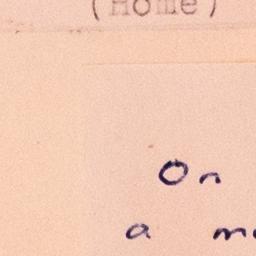 (Home)
On
a